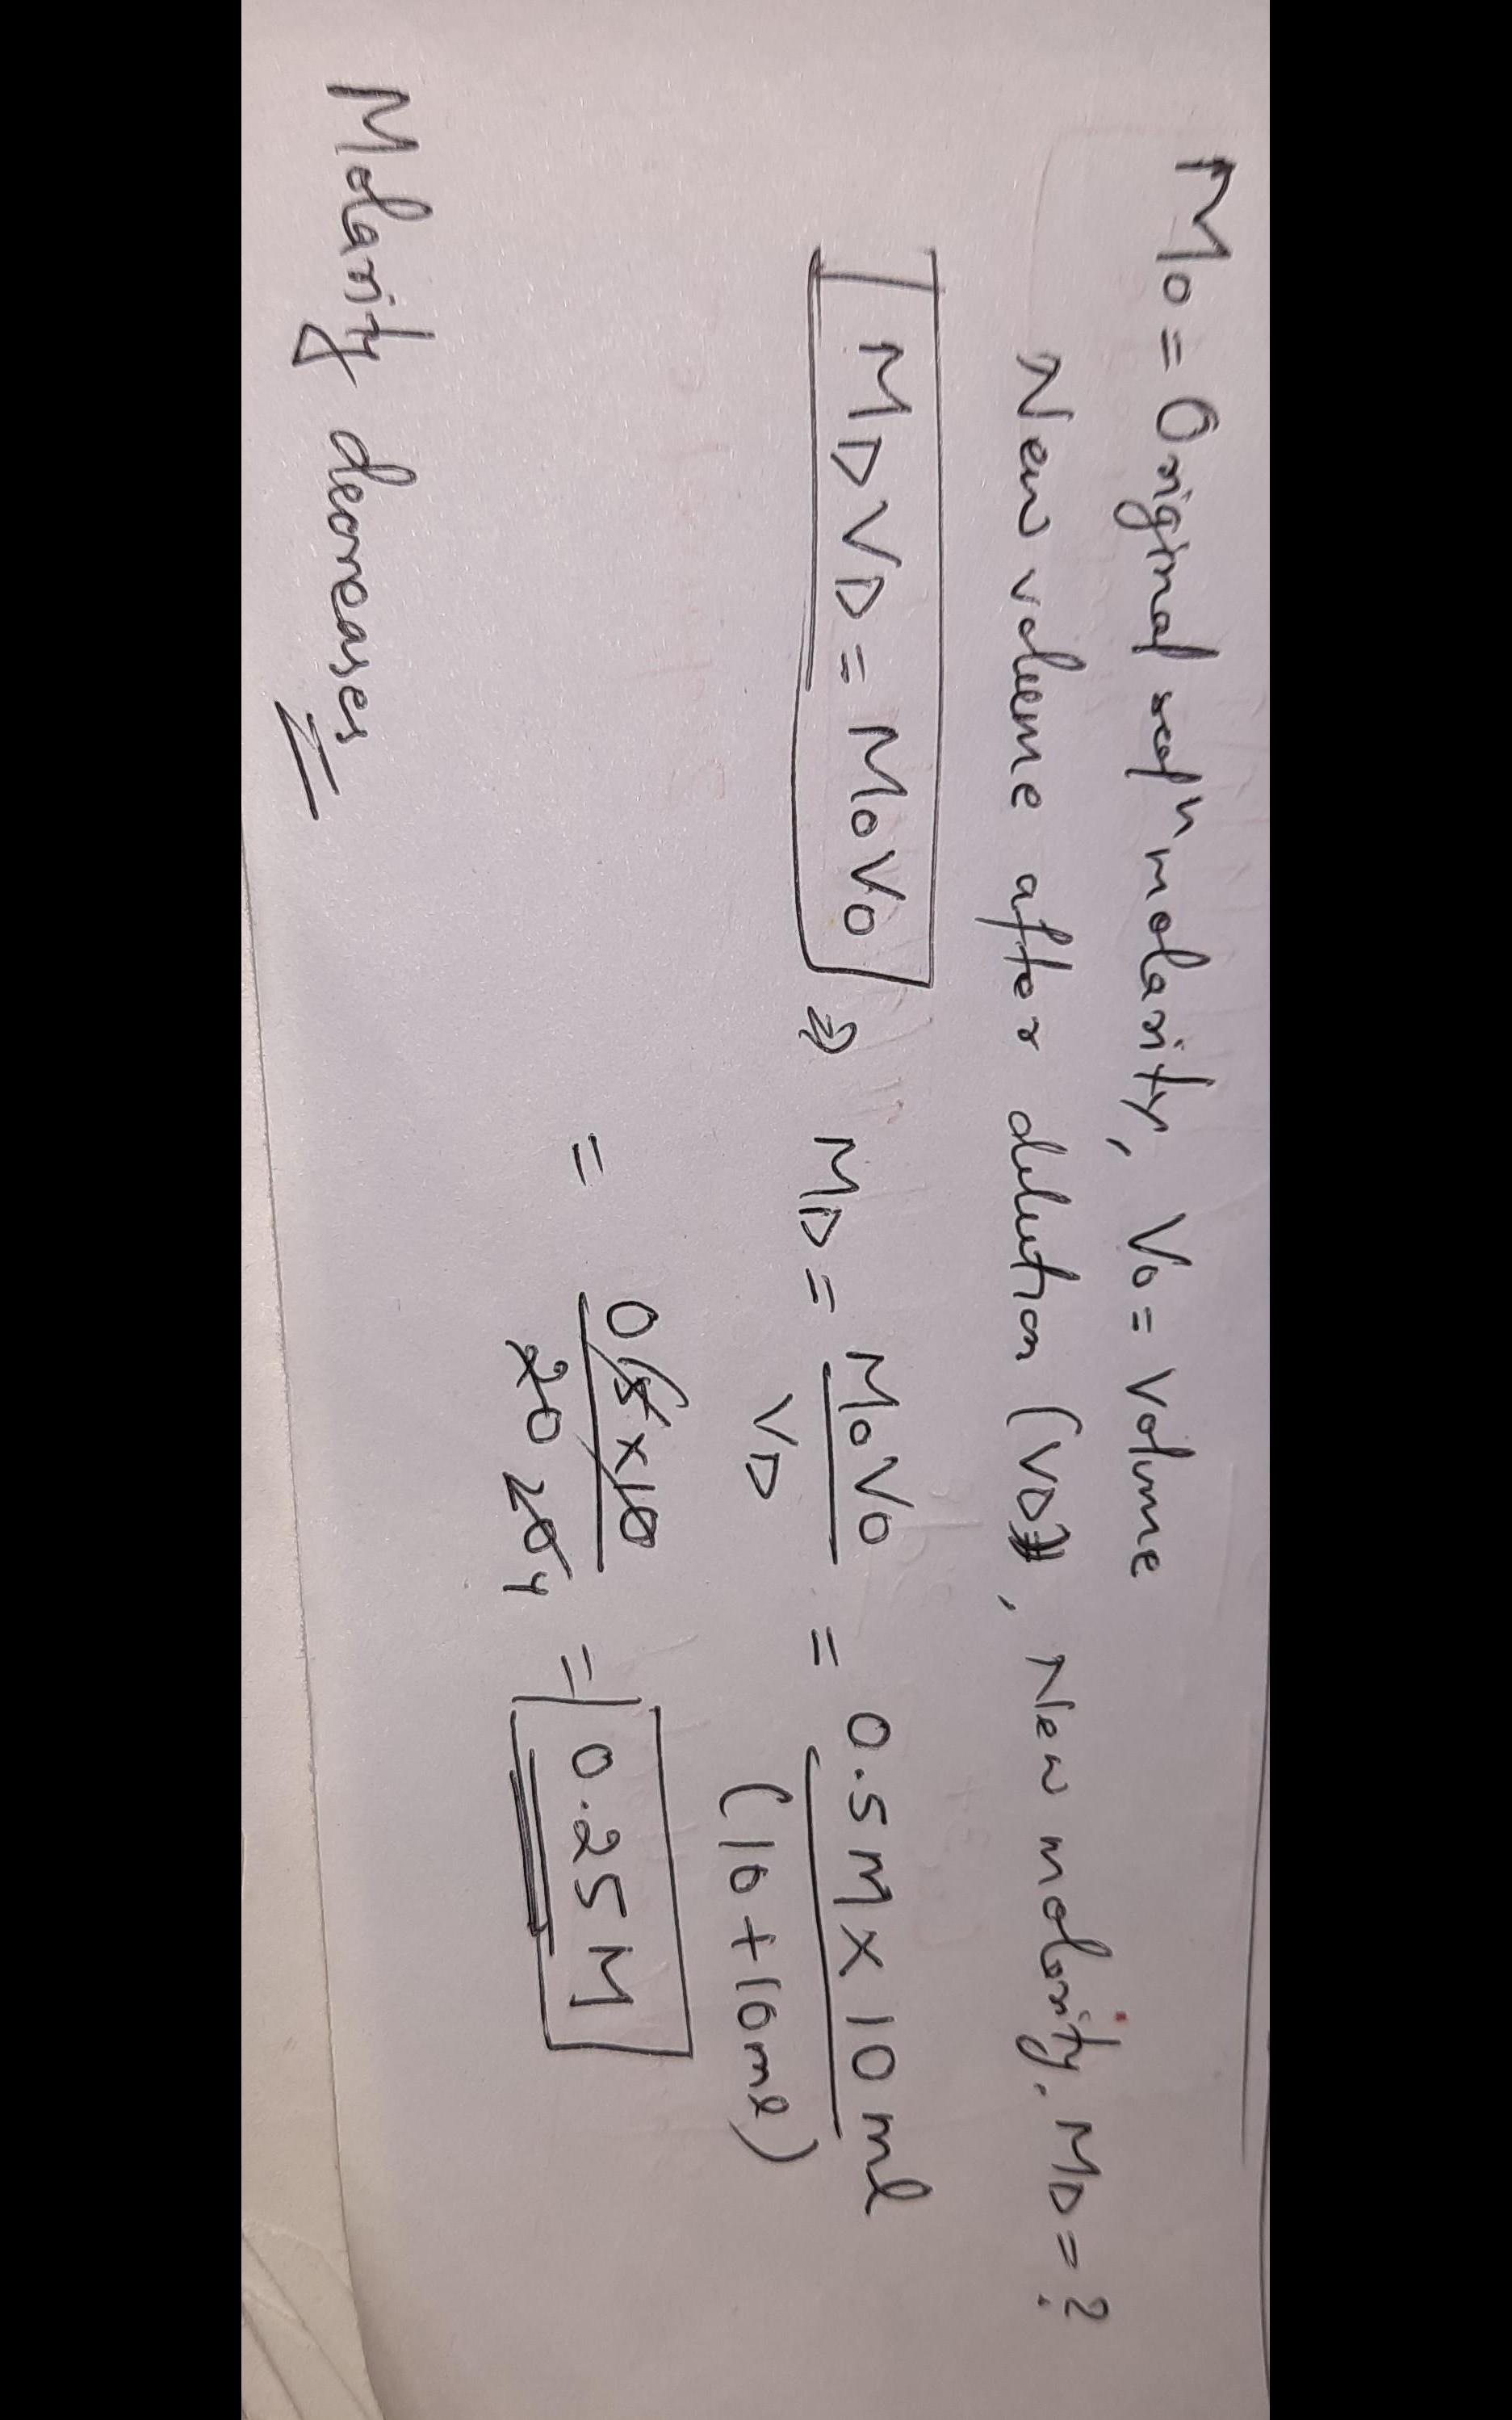 Mo = Original solⁿ molarity, Vo = Volume
New volume after dilution (VD), New molarity, MD = ?
MDVD = MoVo ⇒ MD = MoVo / VD = 0.5M × 10ml / (10+10ml)
= 0.5×10 / 20 = 0.25M
Molarity decreases